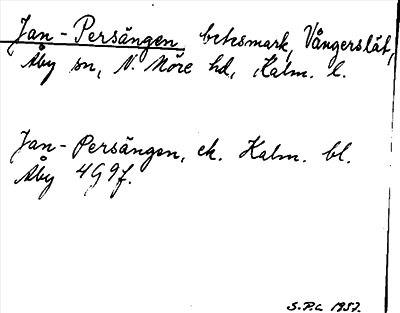 Jan-Persängen betesmark, Vångerslät,
Åby sn, N. Möre hd, Kalm. l.
Jan-Persängen, ek. Kalm. bl.
Åby 4G9f.
S.P.L. 1957.